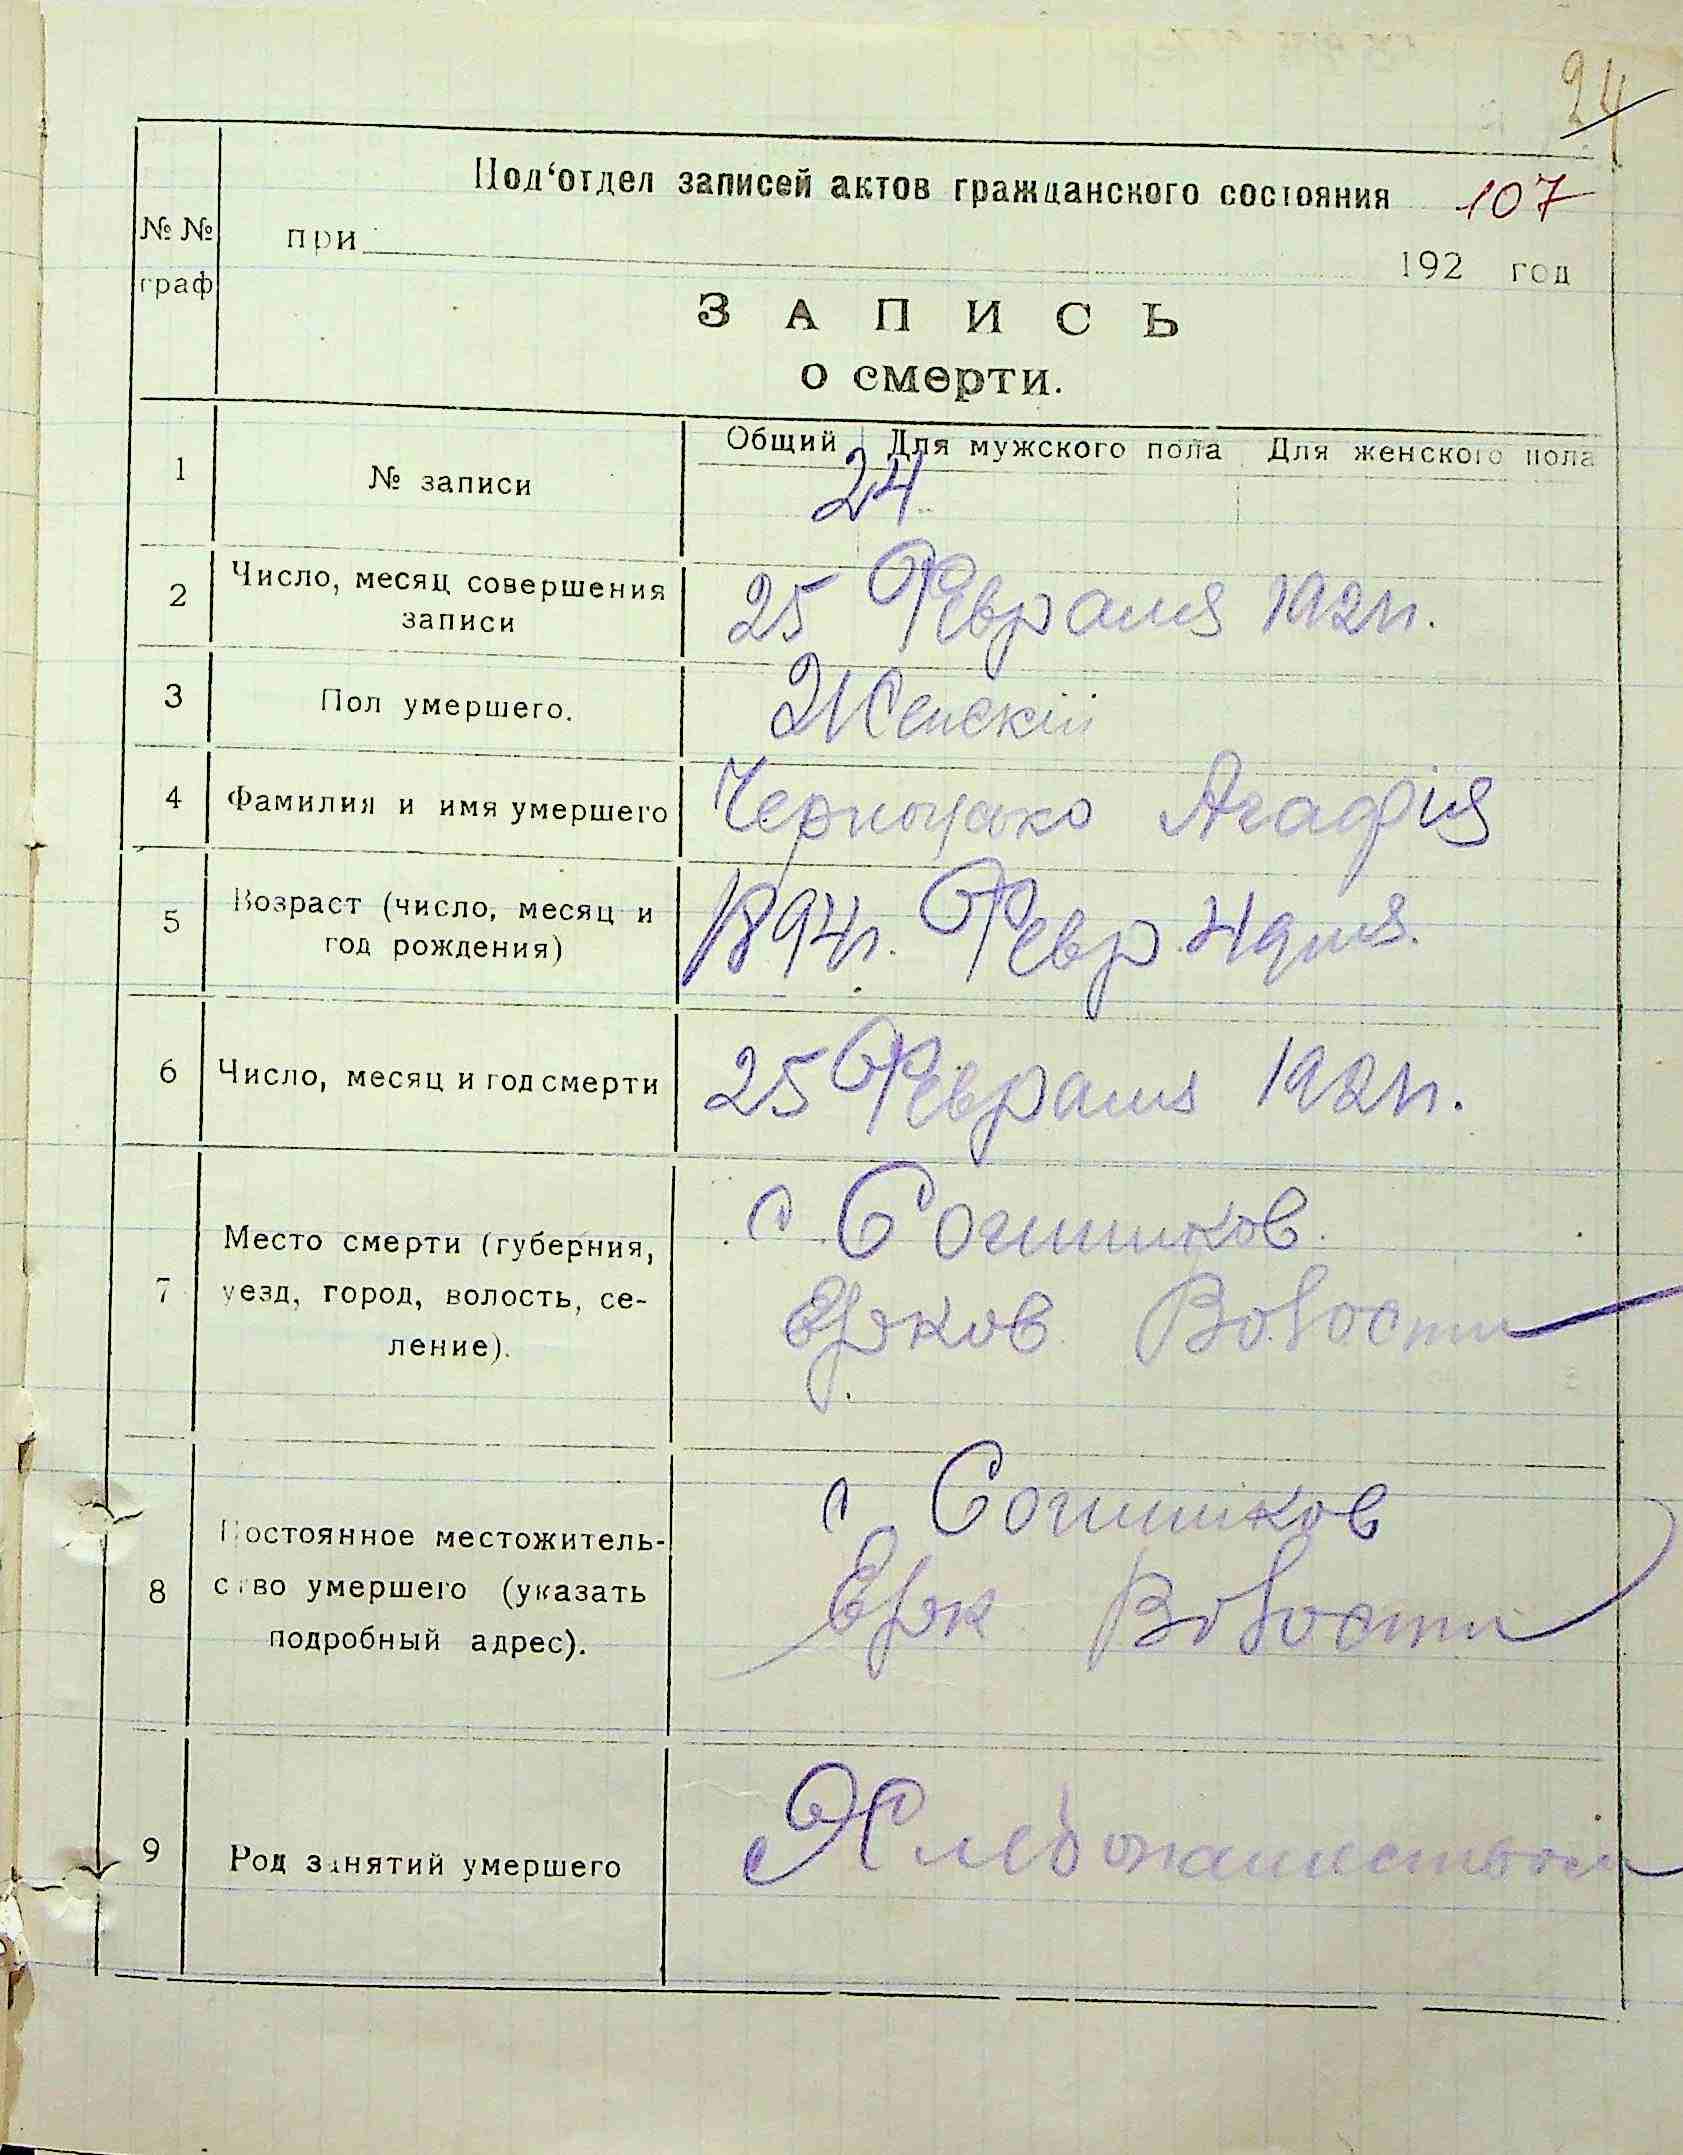 24
Под‘отдел записей актов гражданского состояния 107
№ №
граф
при 192 год
ЗАПИСЬ
о смерти.
Общий Для мужского пола Для женского пола
1 № записи 24
2 Число, месяц совершения
записи
25 Февраля 1921г.
3 Пол умершего. Женскій
4 Фамилия и имя умершего Агафія
5 Возраст (число, месяц и
год рождения)
1894г. Февр. 4 дня.
6 Число, месяц и год смерти 25 Февраля 1921г.
7 Место смерти (губерния,
уезд, город, волость, се-
ление).
с Сошников.
Ерков. Волости
8 Постоянное местожитель-
ство умершего (указать
подробный адрес).
с Сошников
Ерк Волости
9 Род занятий умершего Хлебопашеством